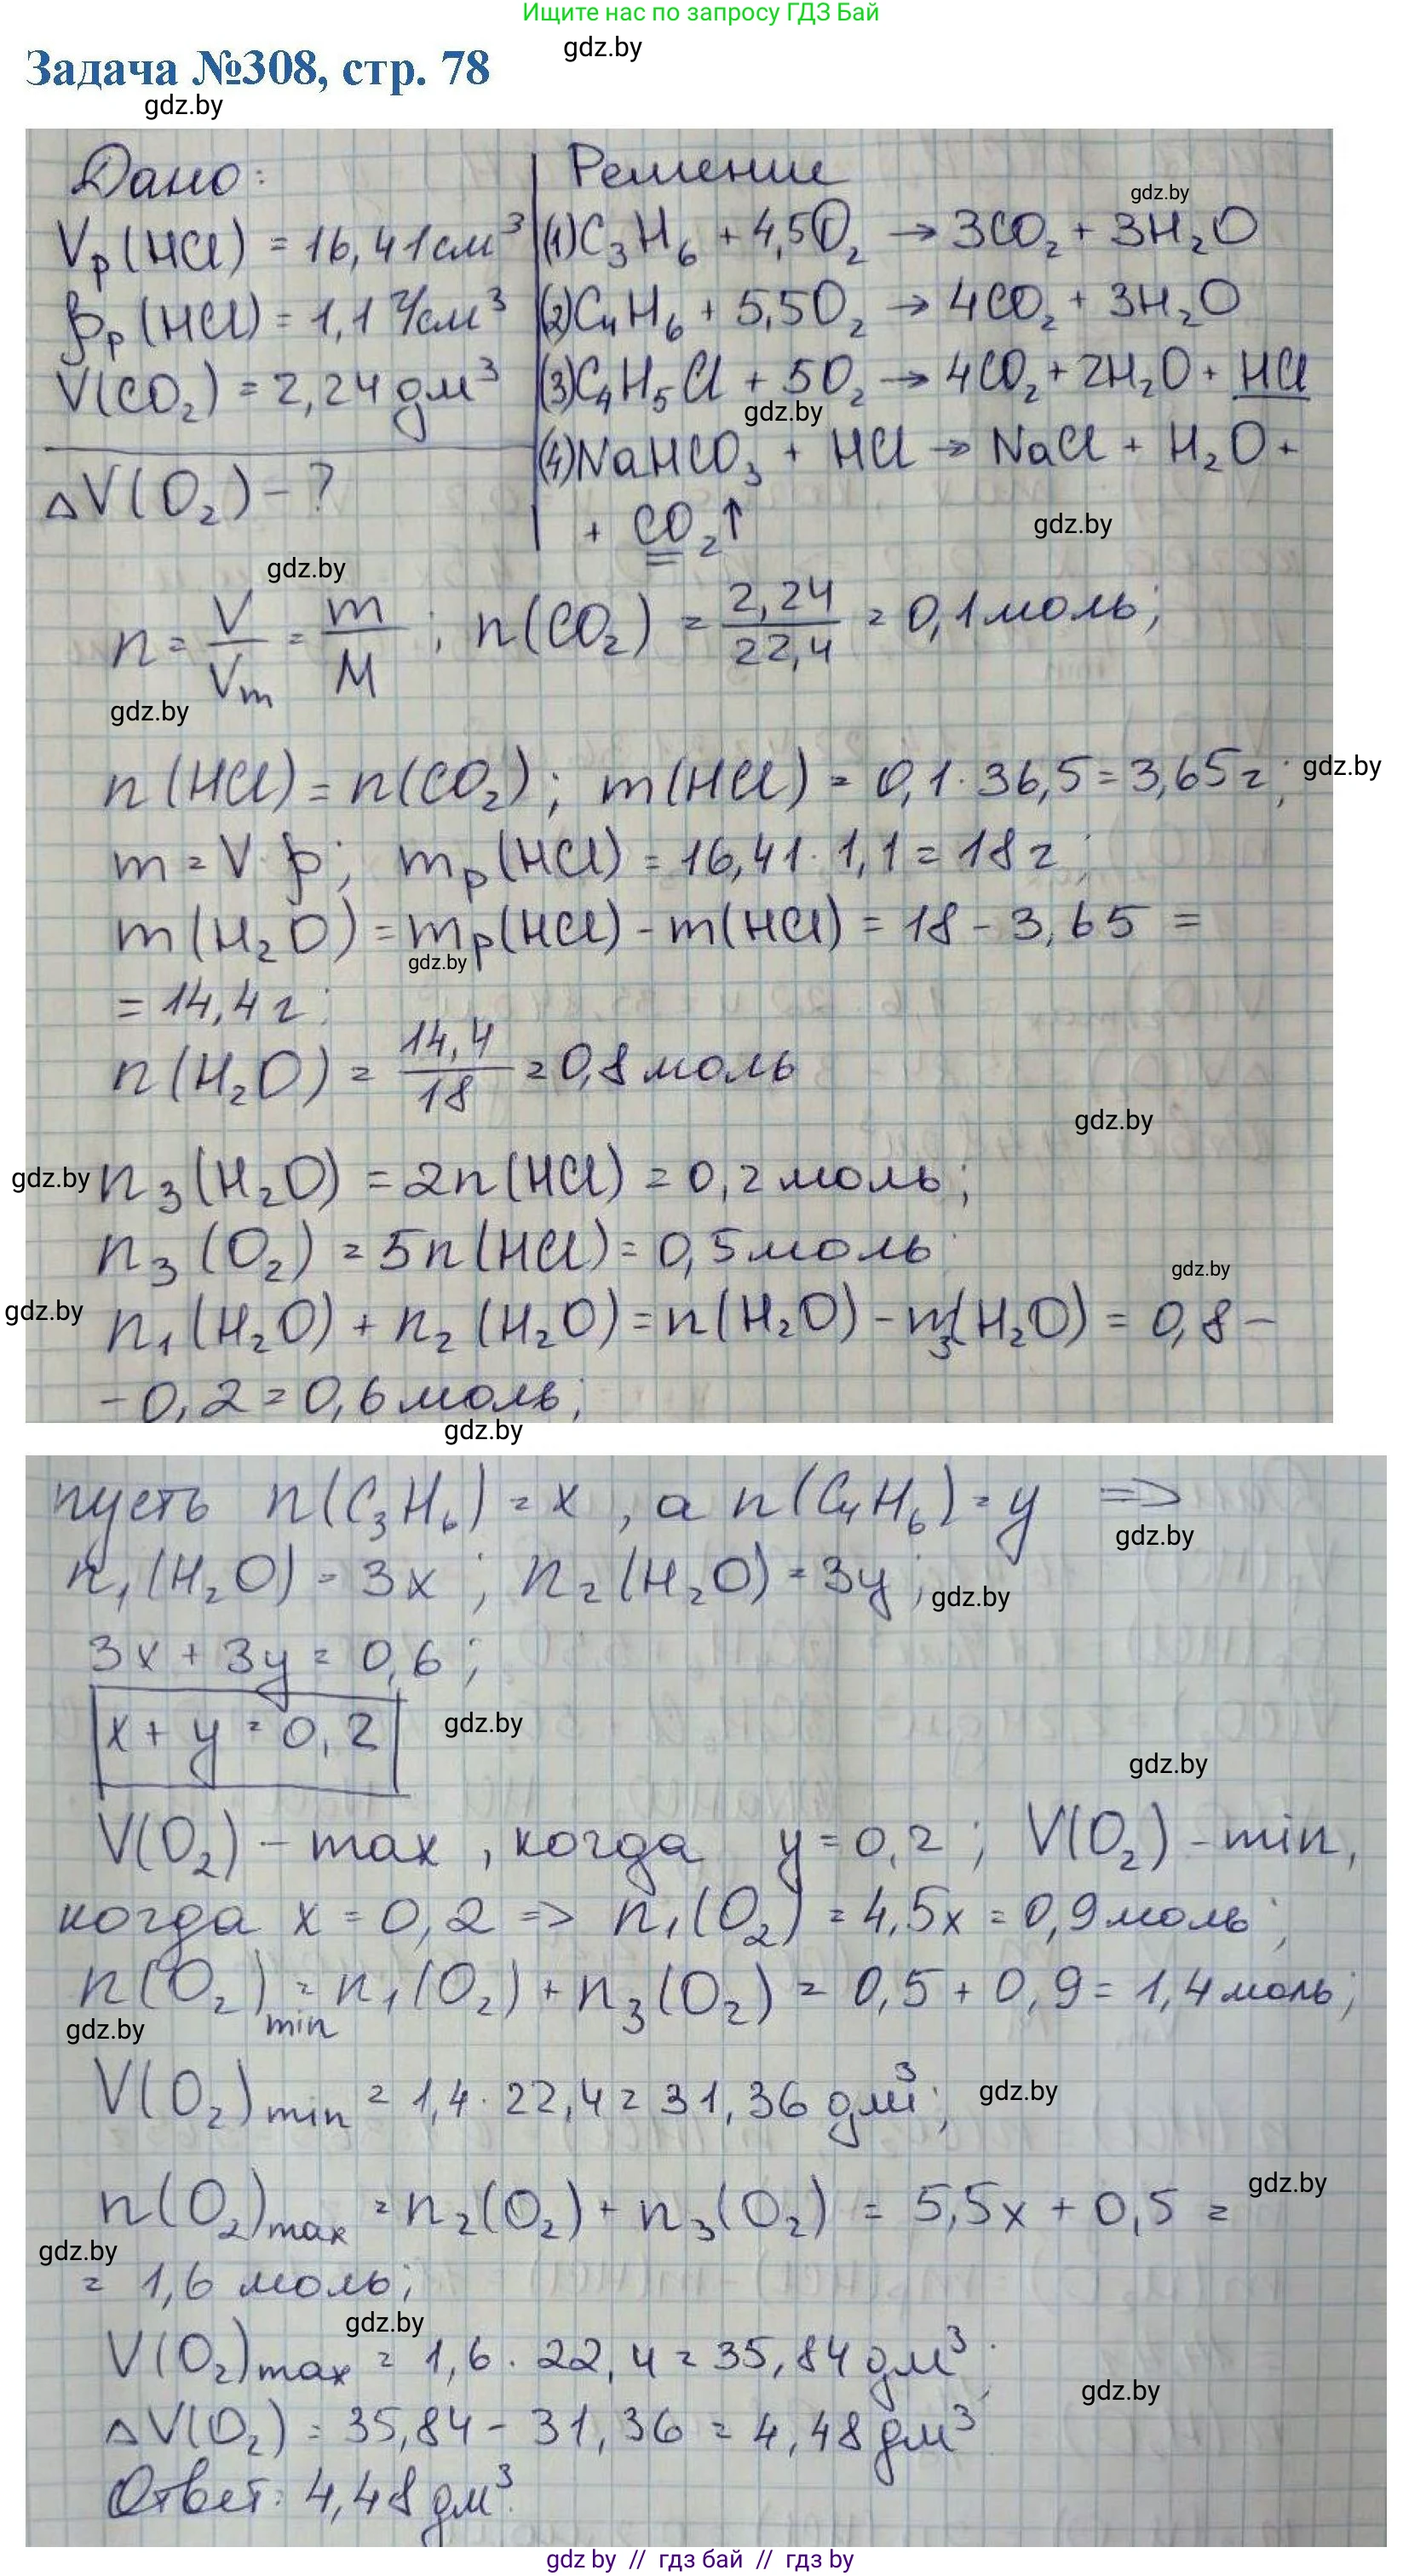 Ищите нас по запросу ГДЗ Бай
gdz.by
Задача №308, стр. 78
gdz.by
Дано:
Vр(HCl) = 16,41см³
ρр(HCl) = 1,1 г/см³
V(CO₂) = 2,24 дм³
ΔV(O₂) - ?
Решение
gdz.by
(1)C₃H₆ + 4,5O₂ → 3CO₂ + 3H₂O
(2)C₄H₆ + 5,5O₂ → 4CO₂ + 3H₂O
(3)C₄H₅Cl + 5O₂ → 4CO₂ + 2H₂O + HCl
gdz.by
(4)NaHCO₃ + HCl → NaCl + H₂O +
+ CO₂↑
gdz.by
gdz.by
n = V/Vm = m/M ; n(CO₂) = 2,24/22,4 = 0,1 моль;
gdz.by
n(HCl) = n(CO₂) ; m(HCl) = 0,1 · 36,5 = 3,65 г;
gdz.by
m = V·ρ; mр(HCl) = 16,41 · 1,1 = 18 г;
m(H₂O) = mр(HCl) - m(HCl) = 18 - 3,65 =
gdz.by
= 14,4 г;
n(H₂O) = 14,4/18 = 0,8 моль
gdz.by
gdz.by
n₃(H₂O) = 2n(HCl) = 0,2 моль;
n₃(O₂) = 5n(HCl) = 0,5 моль
gdz.by
gdz.by
n₁(H₂O) + n₂(H₂O) = n(H₂O) - n₃(H₂O) = 0,8 -
- 0,2 = 0,6 моль;
gdz.by
пусть n(C₃H₆) = x , а n(C₄H₆) = y ⇒
gdz.by
n₁(H₂O) = 3x ; n₂(H₂O) = 3y ;
gdz.by
3x + 3y = 0,6 ;
x + y = 0,2
gdz.by
gdz.by
V(O₂) - max , когда y = 0,2 ; V(O₂) - min,
когда x = 0,2 ⇒ n₁(O₂) = 4,5x = 0,9 моль;
n(O₂)min = n₁(O₂) + n₃(O₂) = 0,5 + 0,9 = 1,4 моль;
gdz.by
V(O₂)min = 1,4 · 22,4 = 31,36 дм³;
gdz.by
n(O₂)max = n₂(O₂) + n₃(O₂) = 5,5x + 0,5 =
gdz.by
gdz.by
= 1,6 моль;
gdz.by
V(O₂)max = 1,6 · 22,4 = 35,84 дм³;
gdz.by
ΔV(O₂) = 35,84 - 31,36 = 4,48 дм³
Ответ: 4,48 дм³.
gdz by // гдз бай // гдз by